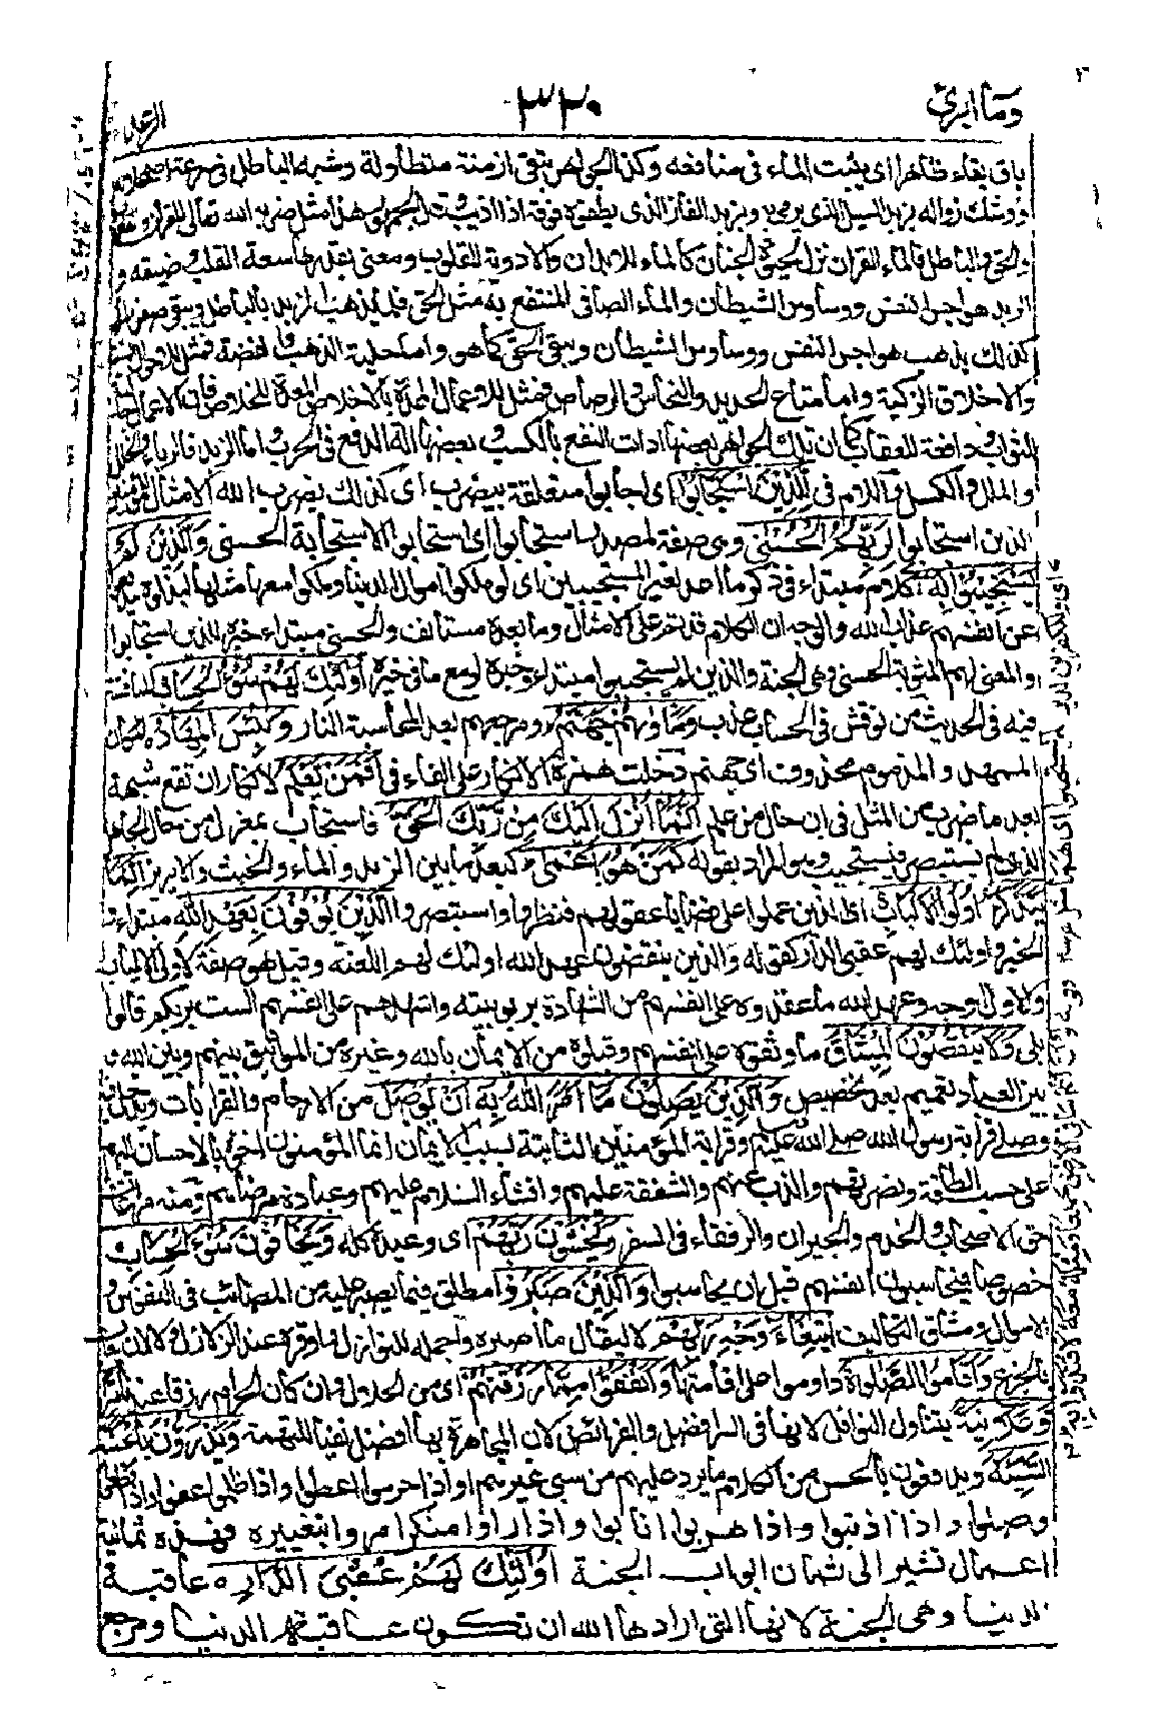 وما ابرئ ٣٣٠ الرعد
باق بقاء ظاهرا اى يثبت الماء فى منافعه وكذا الجواهر تبقى ازمنة متطاولة وشبه الباطل فى سرعة
ووشك زواله بزبد السيل الذى يرمى به وبزبد الفلز الذى يطفو فوقه اذا اذيب قال الجمهور هذا مثل ضربه الله تعالى للقرآن
والحق والباطل فالماء القرآن نزل لحيوة الجنان كالماء للابدان والاودية للقلوب ومعنى بقدرها سعة القلب وضيقه و
الزبد هواجس النفس ووساوس الشيطان والماء الصافى المنتفع به مثل الحق فكما يذهب الزبد بالباطل ويبقى صفو الماء
كذلك يذهب هواجس النفس ووساوس الشيطان ويبقى الحق كما هو واما حلية الذهب والفضة فمثل للاحوال السنية
والاخلاق الزكية واما متاع الحديد والنحاس والرصاص فمثل للاعمال الممدة بالاخلاص المعدة للخلاص فان الاعمال جالبة
للثواب دافعة للعقاب كما ان تلك الجواهر بعضها ادات النفع بالكسب وبعضها آلة الدفع فى الحرب واما الزبد فالرياء والخلل
والملل والكسل واللام فى لِلَّذِيْنَ اسْتَجَابُوْا اى اجابوا متعلقة بيضرب اى كذلك يضرب الله الامثال للمؤمنين
الذين استجابوا لِرَبِّهِمُ الْحُسْنٰى وهى صفة لمصدر استجابوا اى استجابوا الاستجابة الحسنى وَالَّذِيْنَ لَمْ
يَسْتَجِيْبُوْا لَهٗ كلام مبتداء فى ذكر ما اعد لغير المستجيبين اى لو ملكوا اموال الدنيا وملكوا معها مثلها لبذلوه ليدفعوا
عن انفسهم عذاب الله والوجه ان الكلام قد تم على الامثال وما بعده مستأنف والحسنى مبتداء خبره للذين استجابوا
والمعنى لهم المثوبة الحسنى وهى الجنة والذين لم يستجيبوا مبتداء وخبره لو مع ما فى خبره اُولٰٓئِكَ لَهُمْ سُوْٓءُ الْحِسَابِ المناقشة
فيه فى الحديث من نوقش فى الحساب عذب وَمَاْوٰىهُمْ جَهَنَّمُ ومرجعهم بعد المحاسبة النار وَبِئْسَ الْمِهَادُ المكان
الممهد والمذموم محذوف اى جهنم دخلت همزة الانكار على الفاء فى اَفَمَنْ يَّعْلَمُ لانكار ان تقع شبهة
بعد ما ضرب من المثل فى ان حال من علم اَنَّمَآ اُنْزِلَ اِلَيْكَ مِنْ رَّبِّكَ الْحَقُّ فاستجاب بمعزل من حال الجاهل
الذى لم يستبصر فيستجيب وهو المراد بقوله كَمَنْ هُوَ اَعْمٰى كبعد ما بين الزبد والماء والخبث والابريز اِنَّمَا
يَتَذَكَّرُ اُولُوا الْاَلْبَابِ اى الذين عملوا على قضايا عقولهم فنظروا واستبصروا اَلَّذِيْنَ يُوْفُوْنَ بِعَهْدِ اللّٰهِ مبتداء و
الخبر اولئك لهم عقبى الدار كقوله والذين ينقضون عهد الله اولئك لهم اللعنة وقيل هو صفة لاولى الالباب
والاول اوجه وعهد الله ما عقدوه على انفسهم من الشهادة بربوبيته واشهدهم على انفسهم الست بربكم قالوا
بلى وَلَا يَنْقُضُوْنَ الْمِيْثَاقَ ما وثقوه على انفسهم وقبلوه من الايمان بالله وغيره من المواثيق بينهم وبين الله و
بين العباد تعميم بعد تخصيص وَالَّذِيْنَ يَصِلُوْنَ مَآ اَمَرَ اللّٰهُ بِهٖٓ اَنْ يُّوْصَلَ من الارحام والقرابات ويدخل فيه
وصل قرابة رسول الله صلى الله عليه وسلم وقرابة المؤمنين الثابتة بسبب الايمان انما المؤمنون اخوة بالاحسان اليهم
على حسب الطاقة ونصرتهم والذب عنهم والشفقة عليهم وافشاء السلام عليهم وعيادة مرضاهم ومنه مراعاة
حق الاصحاب والخدم والجيران والرفقاء فى السفر وَيَخْشَوْنَ رَبَّهُمْ اى وعيده كله وَيَخَافُوْنَ سُوْٓءَ الْحِسَابِ
خصوصا فيحاسبون انفسهم قبل ان يحاسبوا وَالَّذِيْنَ صَبَرُوْا مطلق فيما يصبر عليه من المصائب فى النفوس و
الاموال ومشاق التكاليف ابْتِغَآءَ وَجْهِ رَبِّهِمْ لا ليقال ما اصبره واحمله للنوازل واوقره عند الزلازل ولا لئلا يعاب
فى الجزع وَاَقَامُوا الصَّلٰوةَ داوموا على اقامتها وَاَنْفَقُوْا مِمَّا رَزَقْنٰهُمْ اى من الحلال وان كان الحرام رزقا عندنا سِرًّا
وَّعَلَانِيَةً يتناول النوافل لانها فى السر افضل والفرائض لان المجاهرة بها افضل نفيا للتهمة وَيَدْرَءُوْنَ بِالْحَسَنَةِ
السَّيِّئَةَ ويدفعون بالحسن من الكلام ما يرد عليهم من سىء غيرهم او اذا حرموا اعطوا واذا ظلموا عفوا واذا قطعوا
وصلوا واذا اذنبوا واذا هربوا انابوا واذا راوا منكرا امروا بتغييره فهذه ثمانية
اعمال تشير الى ثمان ابواب الجنة اُولٰٓئِكَ لَهُمْ عُقْبَى الدَّارِ عاقبة
الدنيا وهى الجنة لانها التى ارادها الله ان تكون عاقبة الدنيا ومرجع